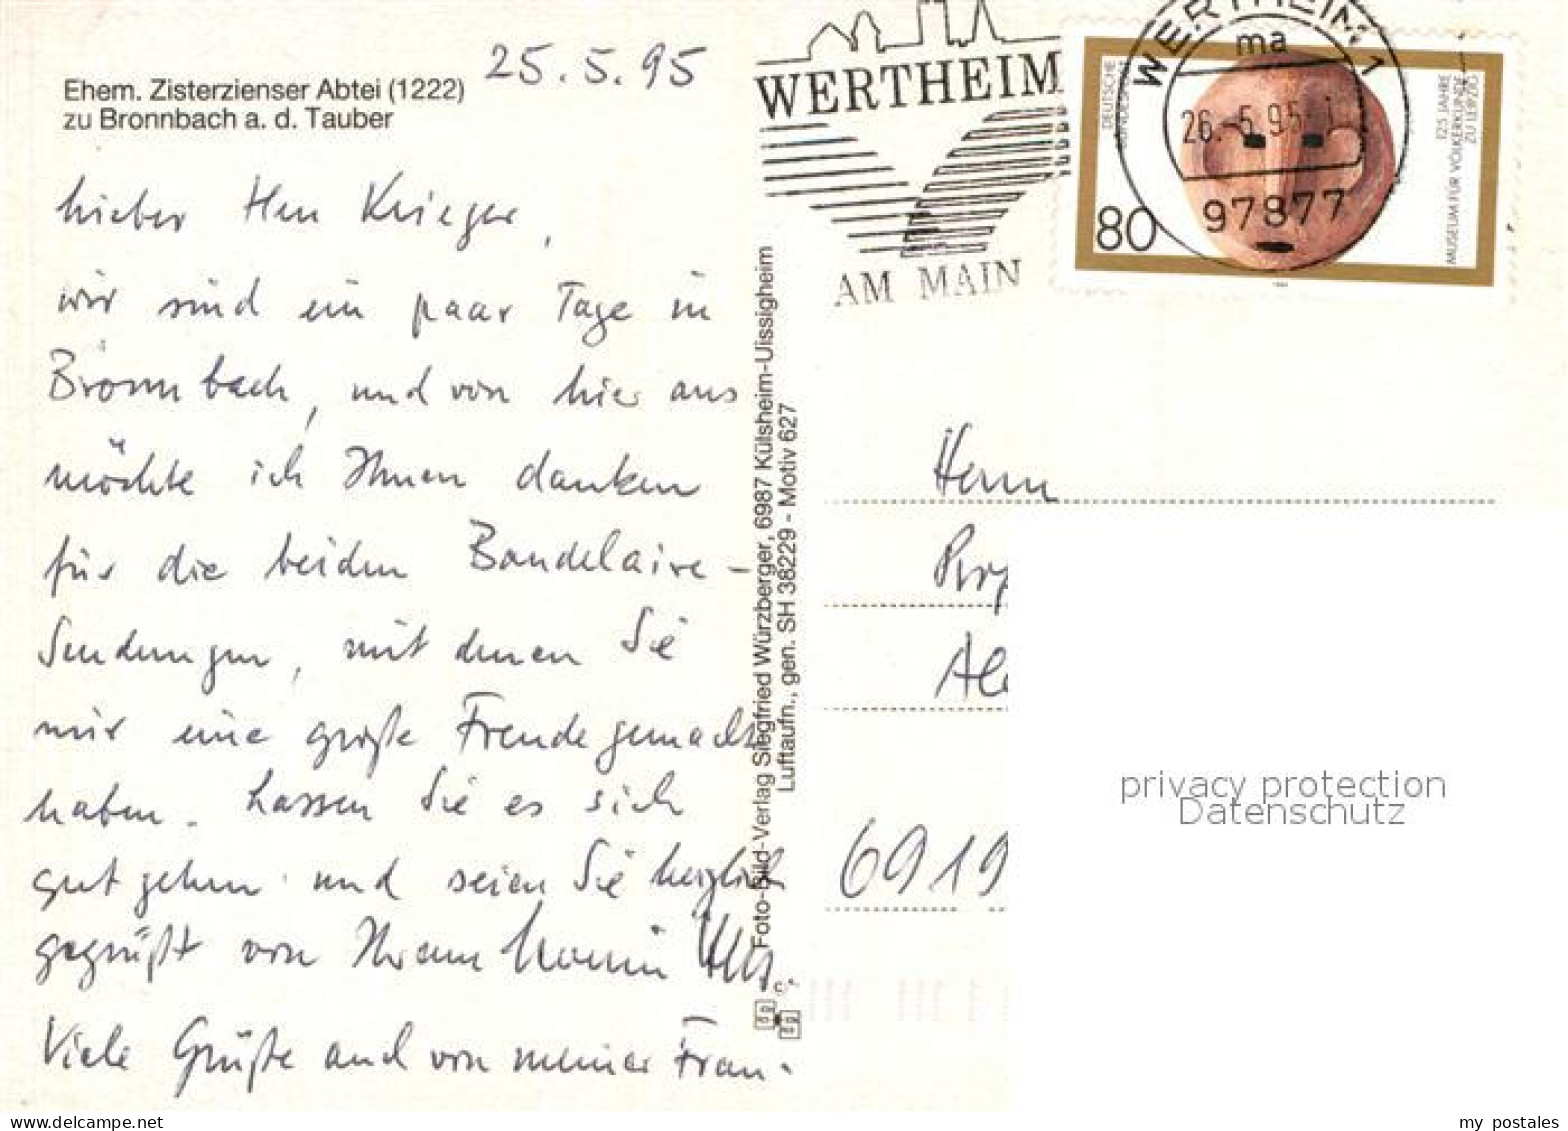 25.5.95
Ehem. Zisterzienser Abtei (1222)
zu Bronnbach a. d. Tauber
Lieber Herr Krieger,
wir sind ein paar Tage in
Bronnbach, und von hier aus
möchte ich Ihnen danken
für die beiden Baudelaire-
Sendungen, mit denen Sie
mir eine große Freude gemacht
haben. Lassen Sie es sich
gut gehen und seien Sie herzlich
gegrüßt von Ihrem
Viele Grüße auch von meiner Frau.
Foto-Bild-Verlag Siegfried Würzberger, 6987 Külsheim-Uissigheim
Luftaufn., gen. SH 38229 - Motiv 627
WERTHEIM
AM MAIN
WERTHEIM 1
ma
26.-5.95
97877
80
DEUTSCHE
BUNDESPOST
125 JAHRE
MUSEUM FÜR VÖLKERKUNDE
ZU LEIPZIG
Herrn
6919
privacy protection
Datenschutz
www.ansichtskartenversand.com
my postales